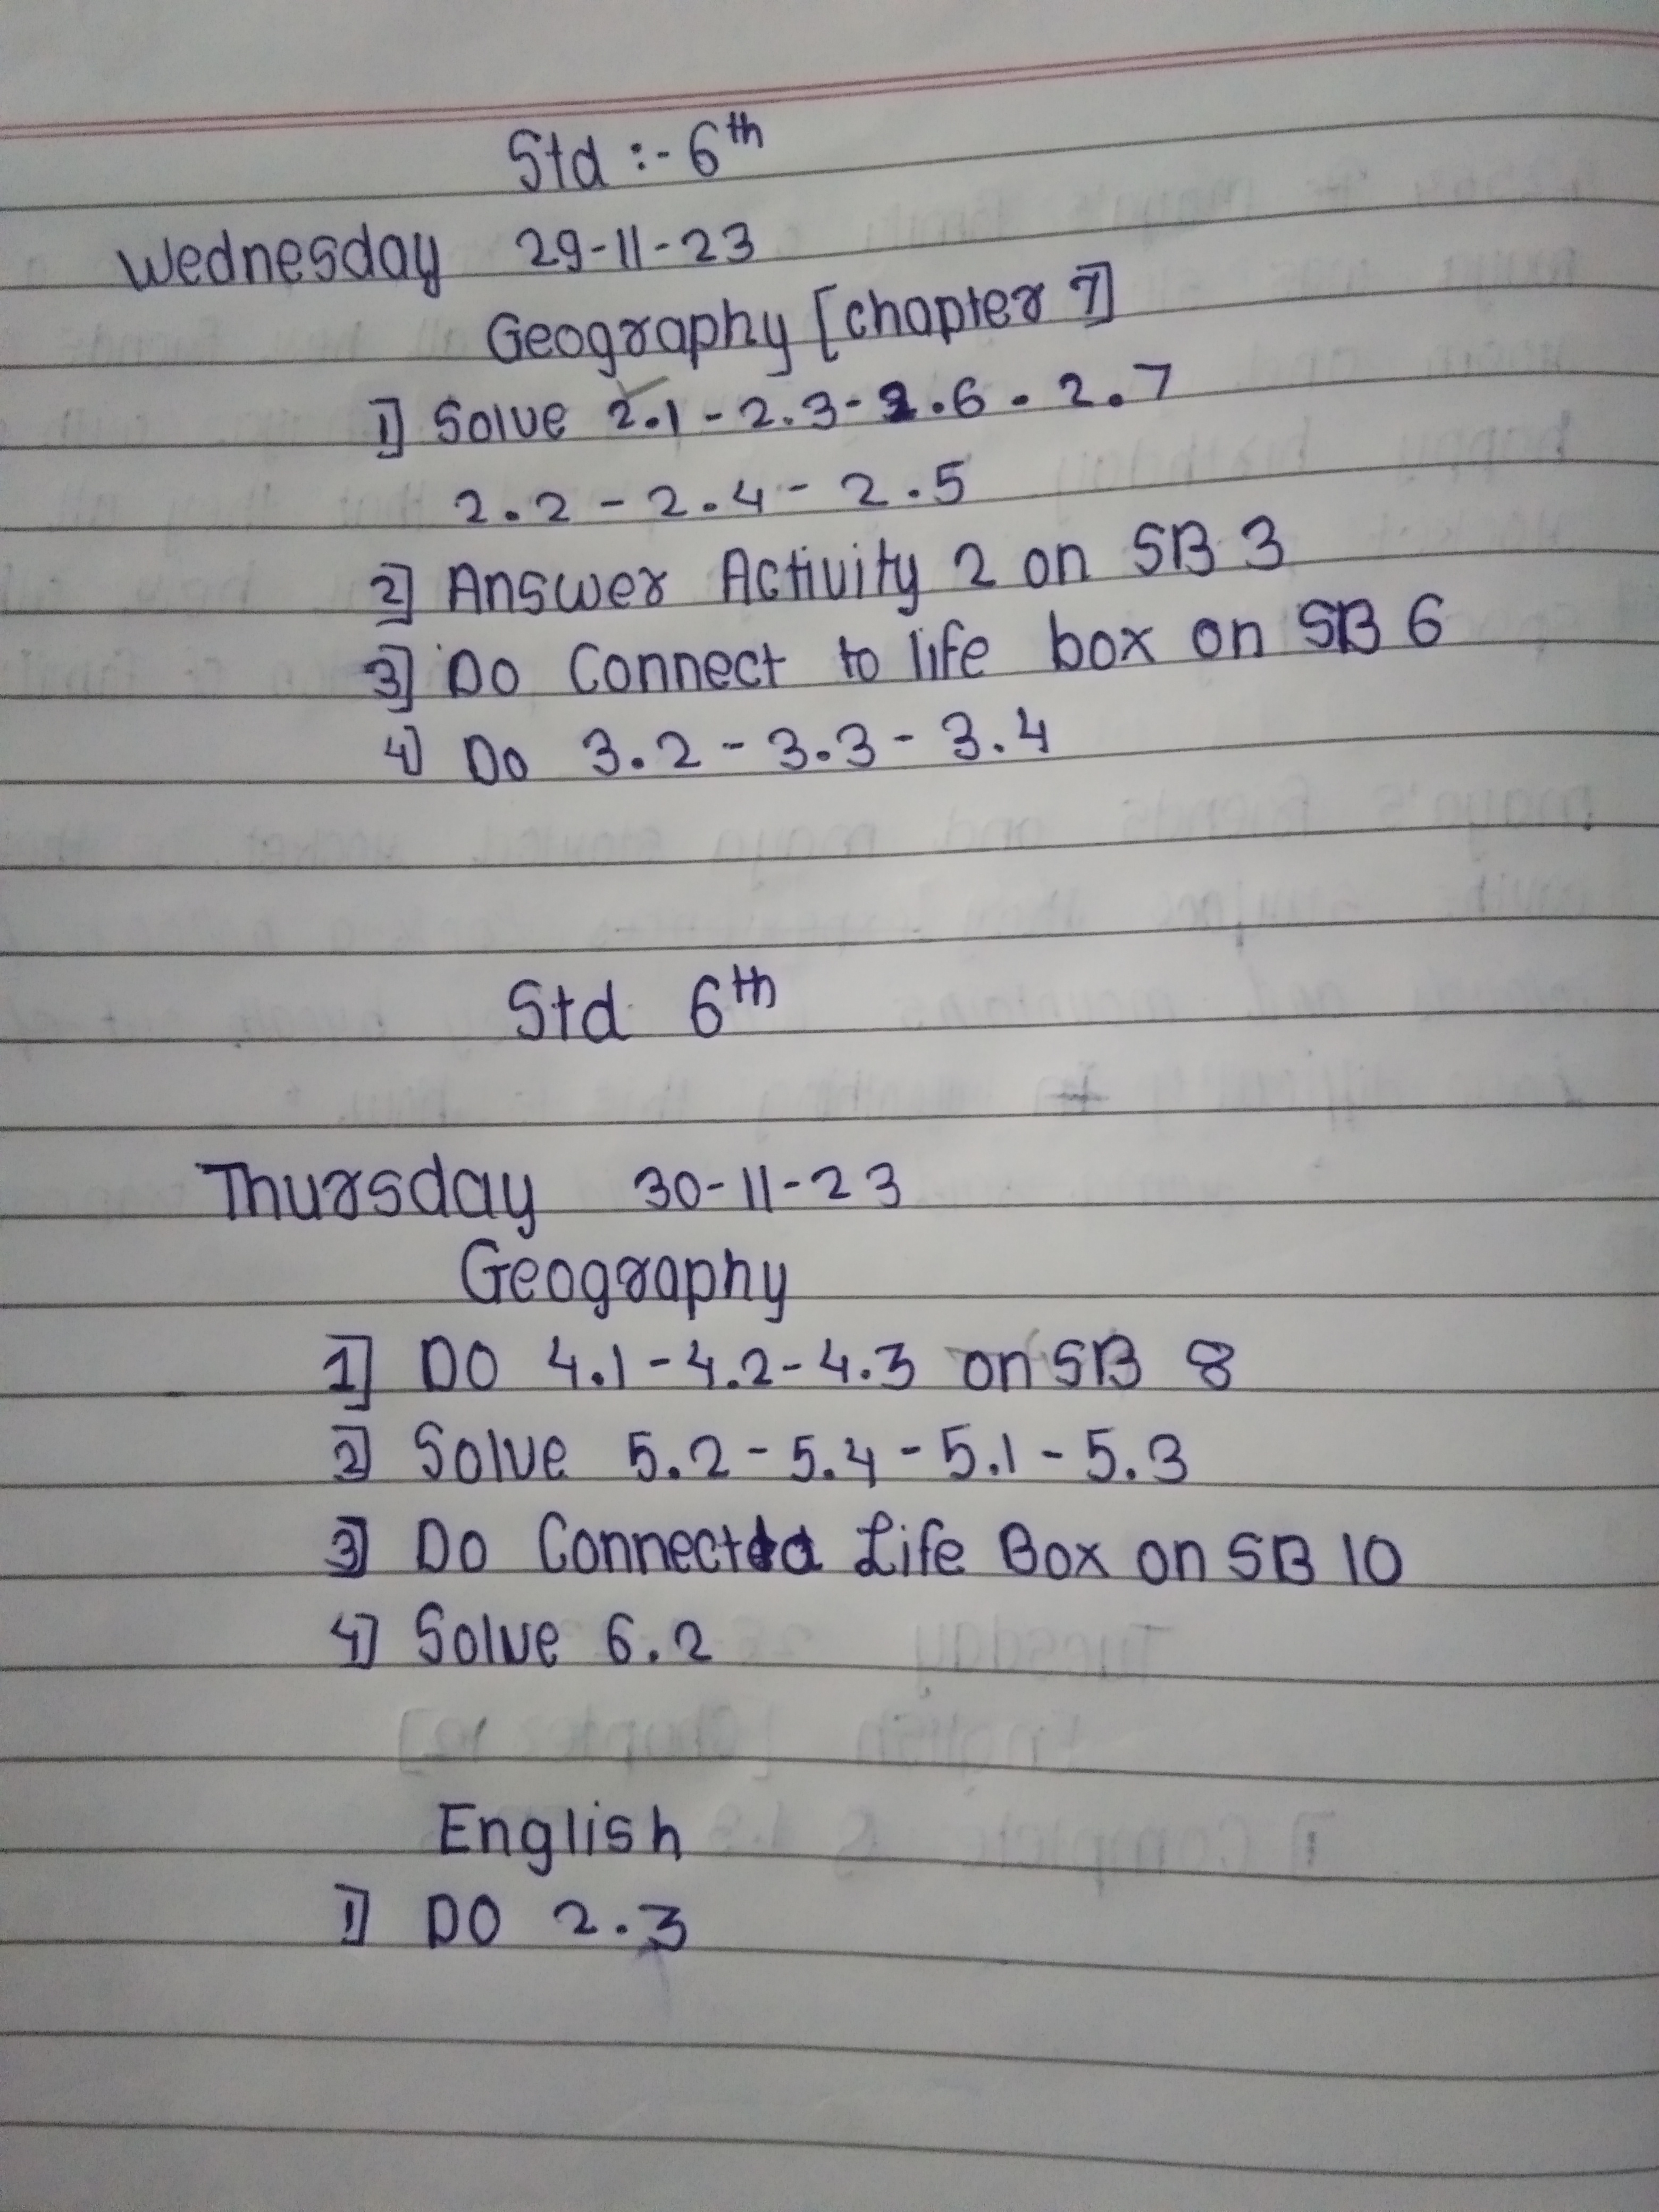 Std :- 6th
Wednesday 29-11-23
Geography [chapter 7]
1] Solve 2.1 - 2.3 - 2.6 - 2.7
2.2 - 2.4 - 2.5
2] Answer Activity 2 on SB 3
3] Do Connect to life box on SB 6
4] Do 3.2 - 3.3 - 3.4
Std 6th
Thursday 30-11-23
Geography
1] DO 4.1 - 4.2 - 4.3 on SB 8
2] Solve 5.2 - 5.4 - 5.1 - 5.3
3] Do Connect Life Box on SB 10
4] Solve 6.2
English
1] DO 2.3